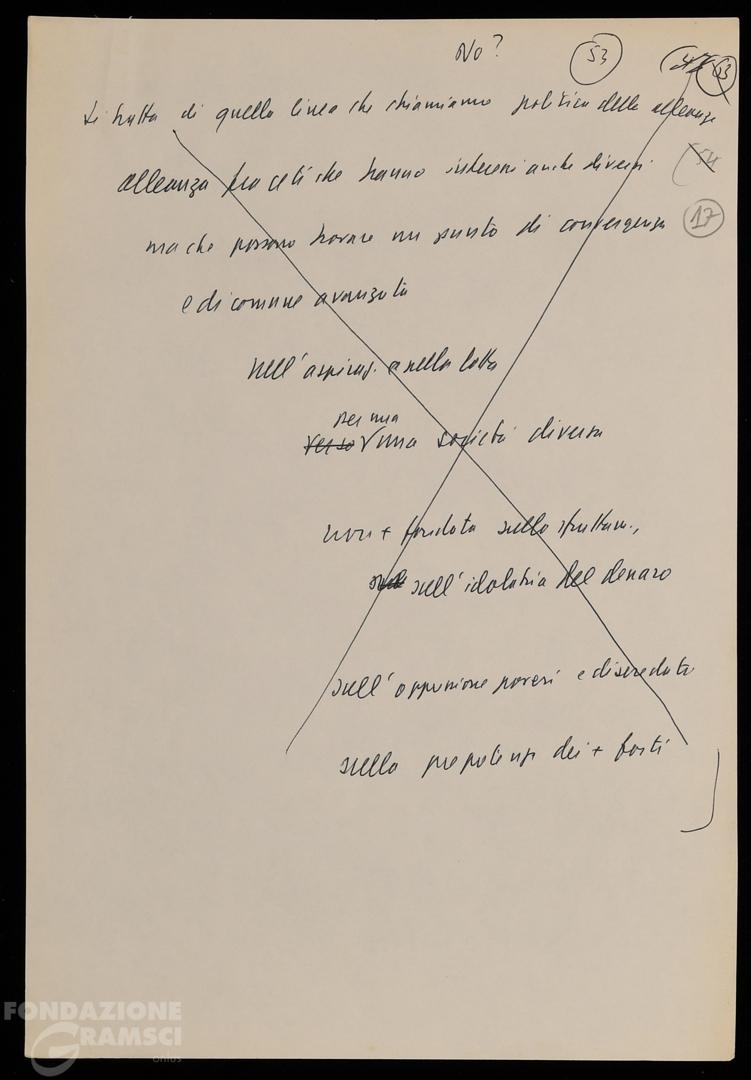 No?
53
63
Si tratta di quella linea che chiamiamo politica delle alleanze
54
alleanza fra ceti che hanno interessi anche diversi
17
ma che possono trovare un punto di convergenza
e di comune avanzata
nell'aspiraz. e nella lotta
per una
verso una società diversa
non + fondata sullo sfruttam.,
sull'idolatria del denaro
sull'oppressione poveri e diseredati
sulla prepotenza dei + forti
FONDAZIONE
GRAMSCI
onlus